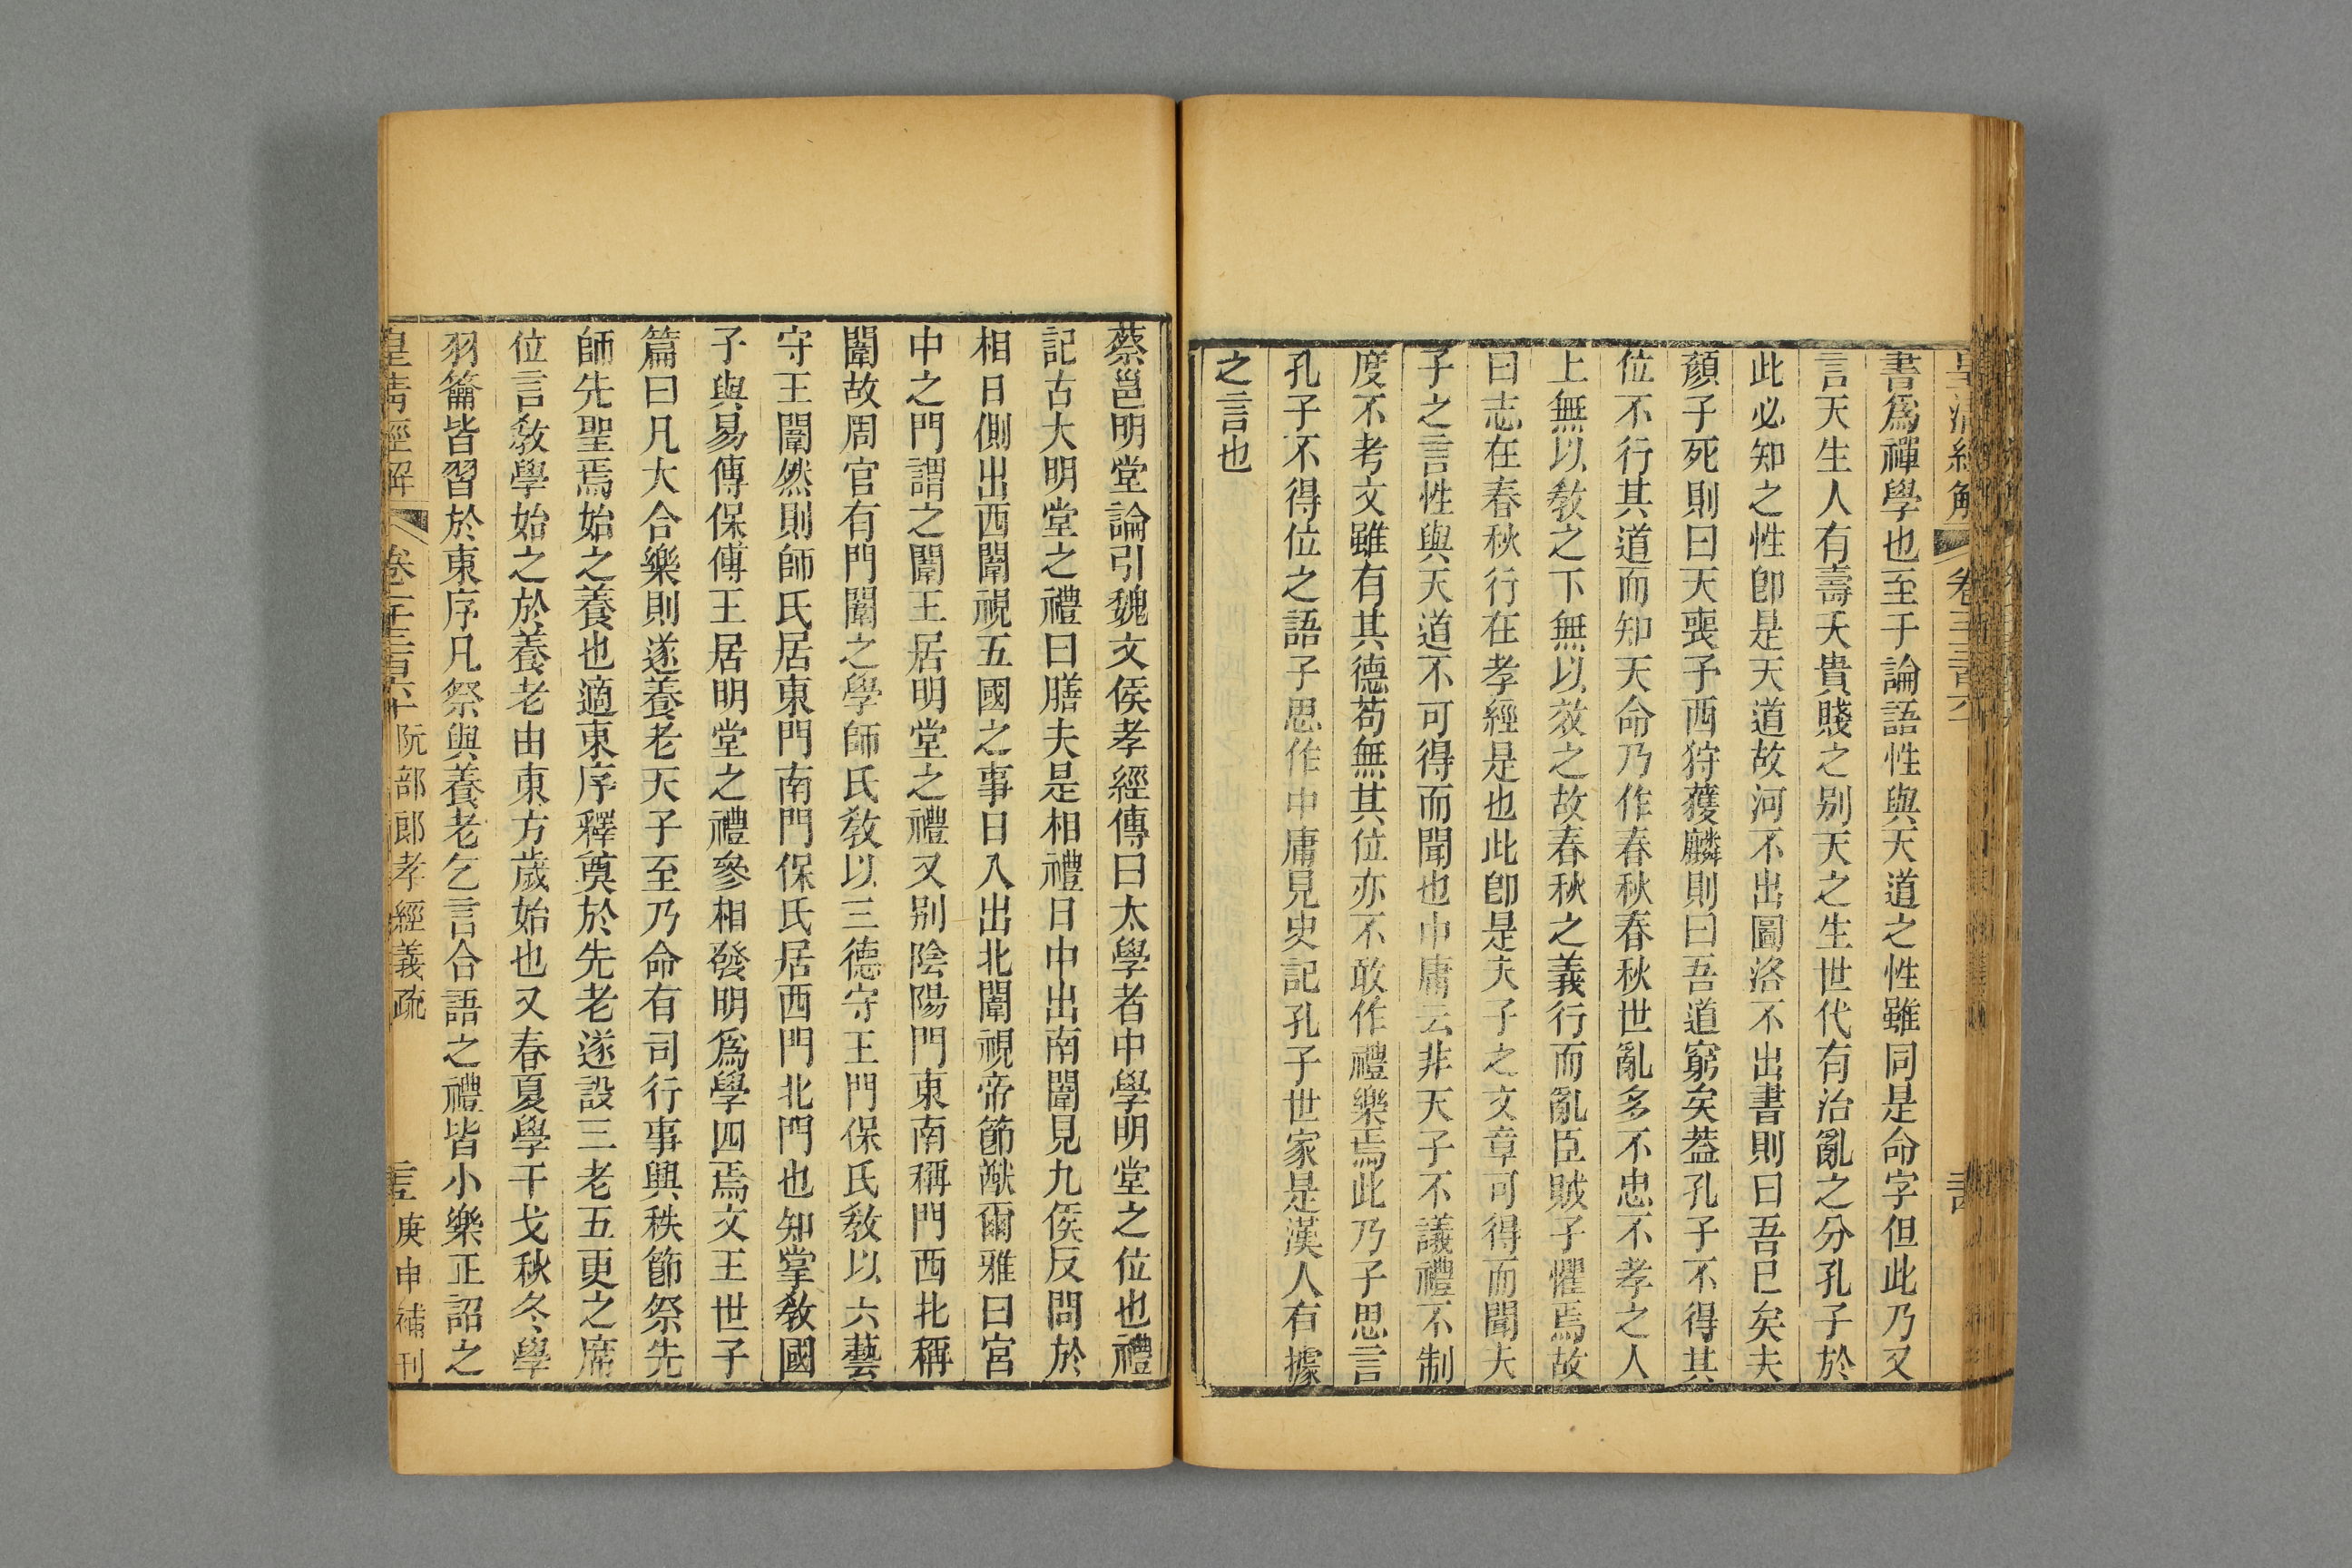 書爲禪學也至于論語性與天道之性雖同是命字但此乃又
言天生人有壽夭貴賤之别天之生世代有治亂之分孔子於
此必知之性卽是天道故河不出圖洛不出書則曰吾已矣夫
顏子死則曰天喪予西狩獲麟則曰吾道窮矣蓋孔子不得其
位不行其道而知天命乃作春秋春秋世亂多不忠不孝之人
上無以敎之下無以效之故春秋之義行而亂臣賊子懼焉故
曰志在春秋行在孝經是也此卽是夫子之文章可得而聞夫
子之言性與天道不可得而聞也中庸云非天子不議禮不制
度不考文雖有其德苟無其位亦不敢作禮樂焉此乃子思言
孔子不得位之語子思作中庸見史記孔子世家是漢人有據
之言也
蔡邕明堂論引魏文侯孝經傳曰太學者中學明堂之位也禮
記古大明堂之禮曰膳夫是相禮日中出南闈見九侯反問於
相日側出西闈視五國之事日入出北闈視帝節猷爾雅曰宮
中之門謂之闈王居明堂之禮又别陰陽門東南稱門西北稱
闈故周官有門闈之學師氏敎以三德守王門保氏敎以六藝
守王闈然則師氏居東門南門保氏居西門北門也知掌敎國
子與易傳保傅王居明堂之禮參相發明爲學四焉文王世子
篇曰凡大合樂則遂養老天子至乃命有司行事興秩節祭先
師先聖焉始之養也適東序釋奠於先老遂設三老五更之席
位言敎學始之於養老由東方歲始也又春夏學干戈秋冬學
羽籥皆習於東序凡祭與養老乞言合語之禮皆小樂正詔之
皇淸經解 阮部郎孝經義疏 庚申補刊